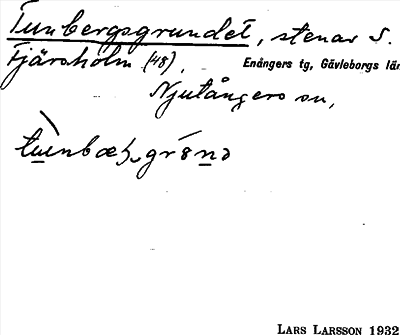 Tunbergsgrundet, stenar S.
Fjärsholm (48).
Enångers tg, Gävleborgs län
Njutångers sn,
LARS LARSSON 1932